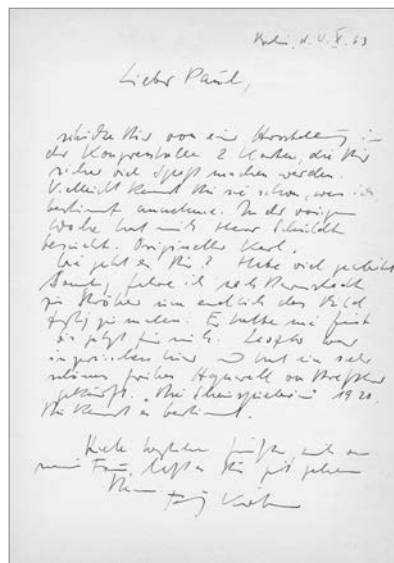 Berlin, d. X. 63
Lieber Paul,
schicke Dir von einer Ausstellung in
der Kongresshalle 2 Karten, die Dir
sicher viel Spaß machen werden.
Vielleicht kennst Du sie schon, was ich
bestimmt annehme. In der vorigen
Woche hat mich Herr
besucht. Origineller Kerl.
Wie geht es Dir? Habe viel gearbeitet
fahre ich nach Darmstadt
zu Ströher um endlich das Bild
fertig zu malen. Er hatte nie Zeit
bis jetzt für mich. war
inzwischen hier und hat ein sehr
schönes frühes Aquarell von
gekauft. „Die 1920.
Du kennst es bestimmt.
Viele herzliche Grüße, auch von
meiner Frau, laß es Dir gut gehen
Dein